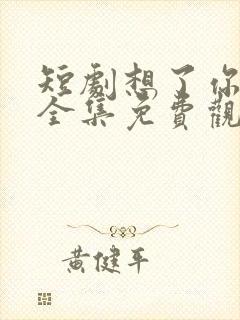 短劇想了你
全集免費觀
黃健平